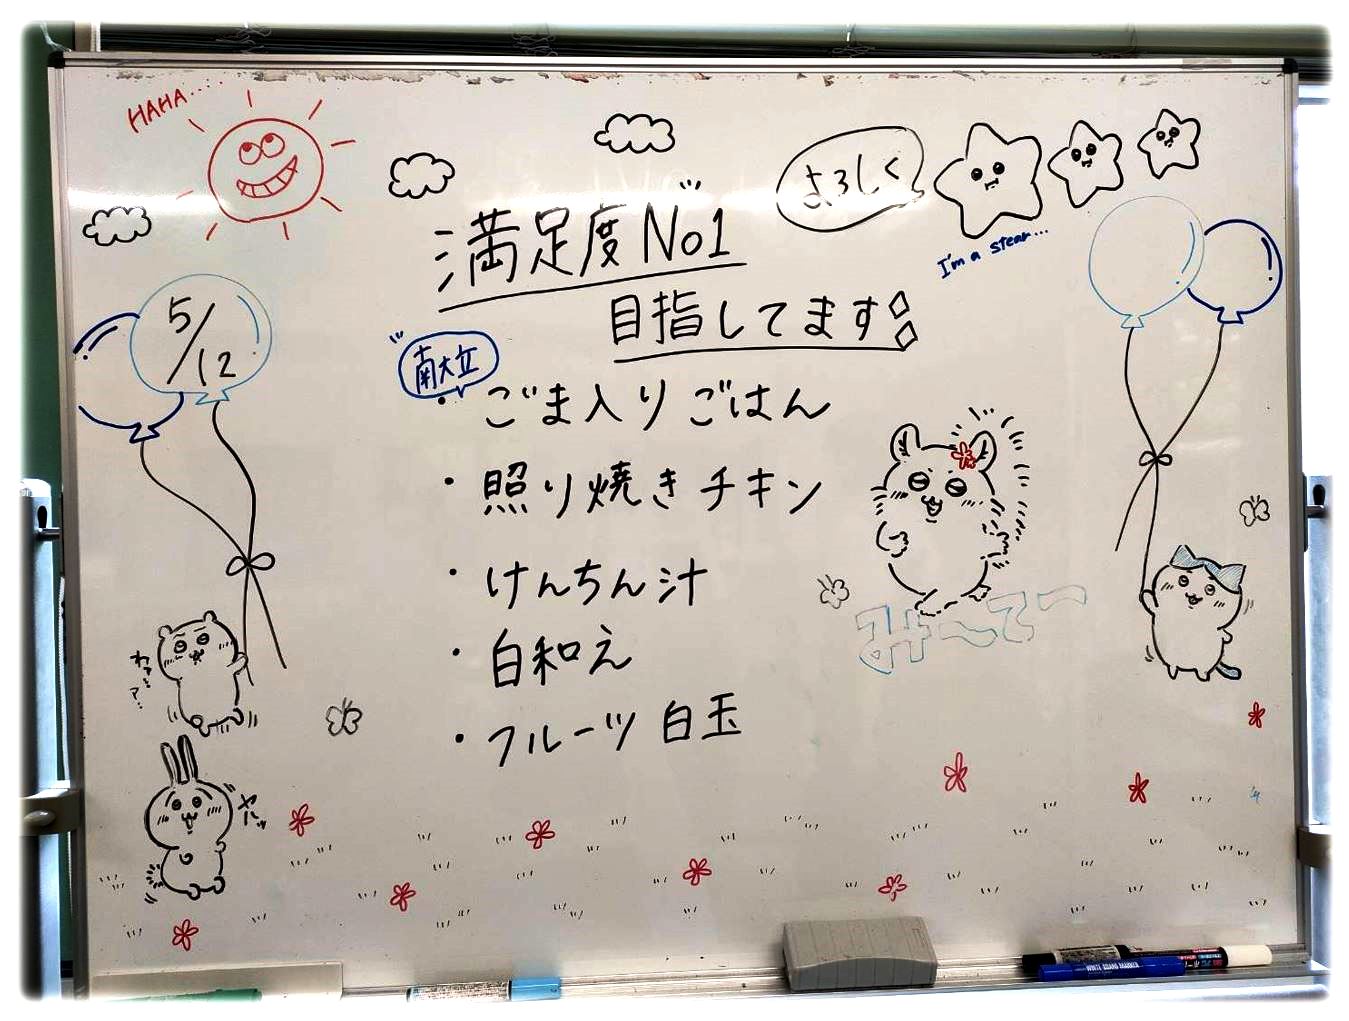 HAHA....
よろしく
I'm a stear...
満足度No1
目指してます
5/12
南大立
・ごま入りごはん
・照り焼きチキン
・けんちん汁
・白和え
・フルーツ白玉
み〜てー
わァ…ァ…
ヤハッ
WHITE BOARD MARKER